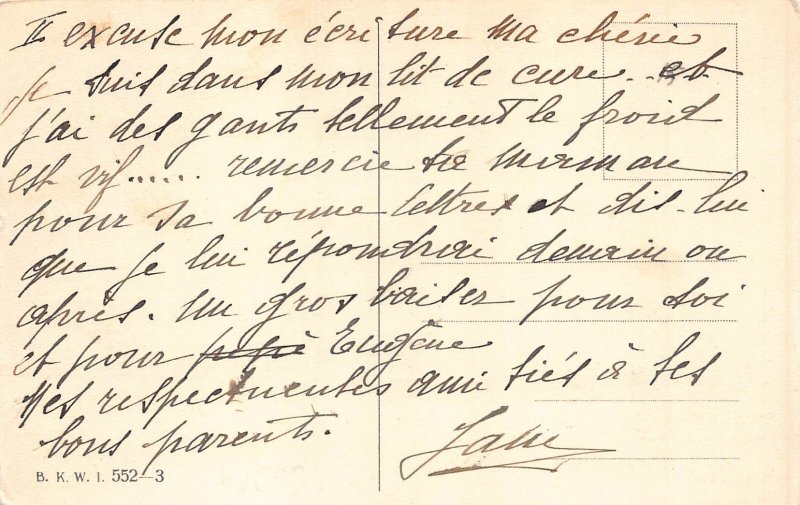 II excuse mon écriture ma chérie
je suis dans mon lit de cure.. et
j'ai des gants tellement le froid
est vif...... remercie ta maman
pour sa bonne lettre et dis-lui
que je lui répondrai demain ou
après. Un gros baiser pour toi
et pour pépé Eugène
Mes respectueuses amitiés à tes
bons parents.
B. K. W. I. 552—3